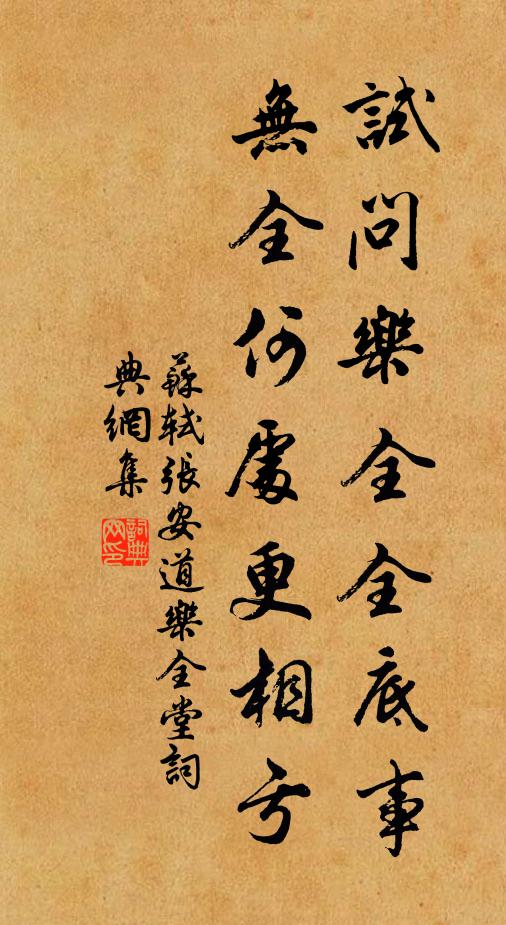 試問樂全全底事
無全何處更相亏
蘇軾張安道樂全堂詞
典網集
詞典网印